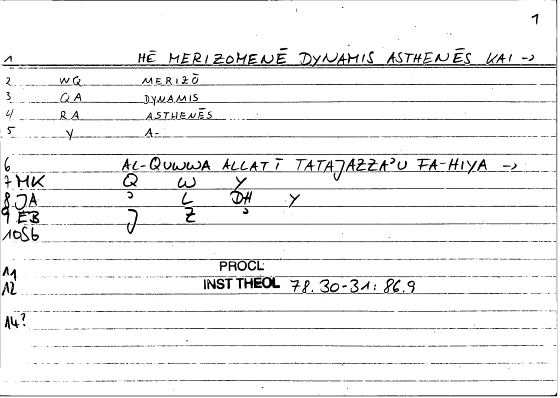 1
1 HĒ MERIZOMENĒ DYNAMIS ASTHENĒS KAI →
2 WQ MERIZŌ
3 QA DYNAMIS
4 RA ASTHENĒS
5 Y A-
6 AL-QUWWA ALLATĪ TATAJAZZA'U FA-HIYA →
7 MK Q W Y
8 JA ' L DH Y
9 EB J Z '
10 Sb
11 PROCL
12 INST THEOL 78.30-31: 86.9
14?